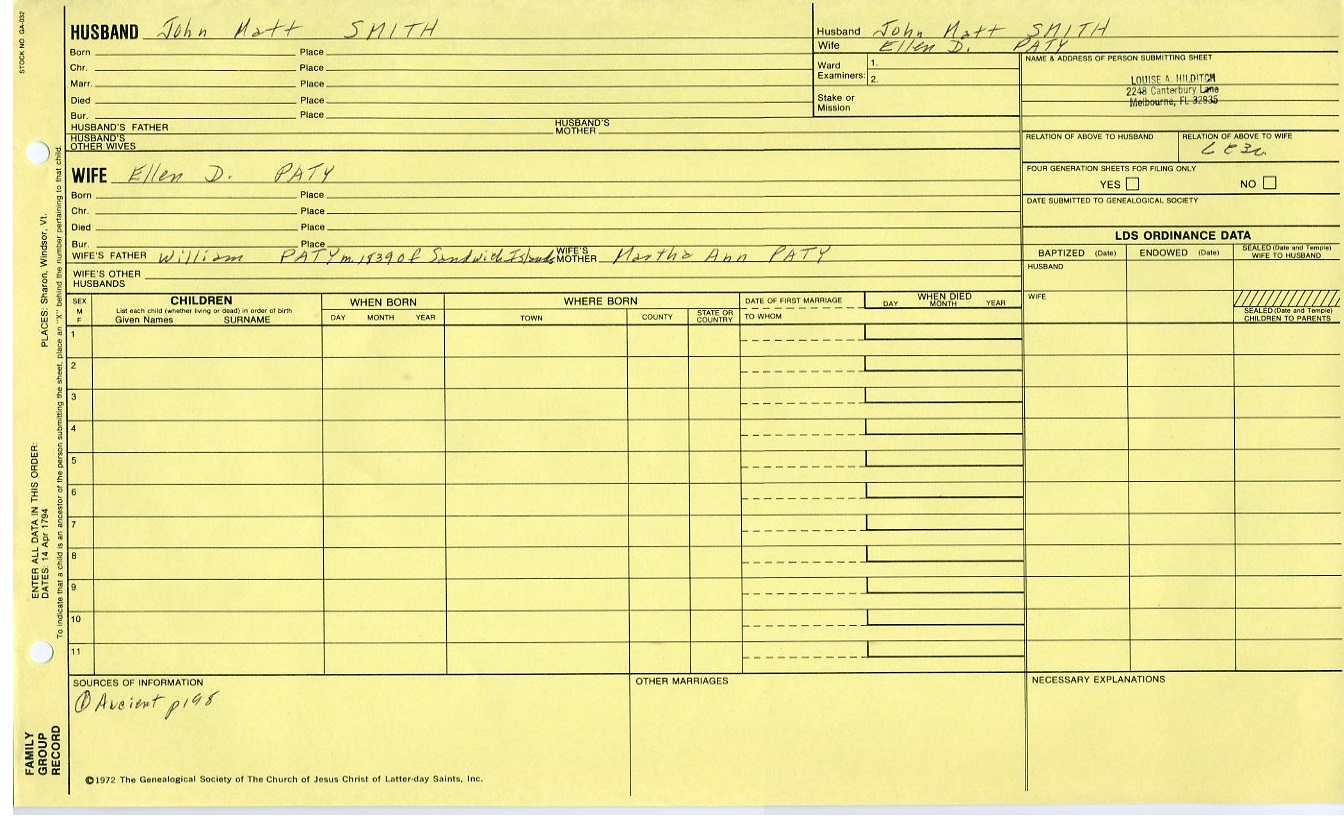 STOCK NO. GA-032
HUSBAND John Matt SMITH
Born Place
Chr. Place
Marr. Place
Died Place
Bur. Place
HUSBAND'S FATHER HUSBAND'S MOTHER
HUSBAND'S OTHER WIVES
Husband John Matt SMITH
Wife Ellen D. PATY
Ward Examiners: 1.
2.
Stake or Mission
NAME & ADDRESS OF PERSON SUBMITTING SHEET
LOUISE A. HILDITCH
2248 Canterbury Lane
Melbourne, FL 32935
RELATION OF ABOVE TO HUSBAND RELATION OF ABOVE TO WIFE
FOUR GENERATION SHEETS FOR FILING ONLY
YES NO
DATE SUBMITTED TO GENEALOGICAL SOCIETY
WIFE Ellen D. PATY
Born Place
Chr. Place
Died Place
Bur. Place
WIFE'S FATHER William PATY m. 1839 of Sandwich Islands WIFE'S MOTHER Martha Ann PATY
WIFE'S OTHER HUSBANDS
LDS ORDINANCE DATA
BAPTIZED (Date) ENDOWED (Date) SEALED (Date and Temple) WIFE TO HUSBAND
HUSBAND
WIFE
SEALED (Date and Temple) CHILDREN TO PARENTS
SEX M F
CHILDREN
List each child (whether living or dead) in order of birth
Given Names SURNAME
WHEN BORN
DAY MONTH YEAR
WHERE BORN
TOWN COUNTY STATE OR COUNTRY
DATE OF FIRST MARRIAGE
TO WHOM
WHEN DIED
DAY MONTH YEAR
1
2
3
4
5
6
7
8
9
10
11
SOURCES OF INFORMATION
① Ancient p198
OTHER MARRIAGES
NECESSARY EXPLANATIONS
©1972 The Genealogical Society of The Church of Jesus Christ of Latter-day Saints, Inc.
FAMILY GROUP RECORD
ENTER ALL DATA IN THIS ORDER:
DATES: 14 Apr 1794 PLACES: Sharon, Windsor, Vt.
To indicate that a child is an ancestor of the person submitting the sheet, place an "X" behind the number pertaining to that child.